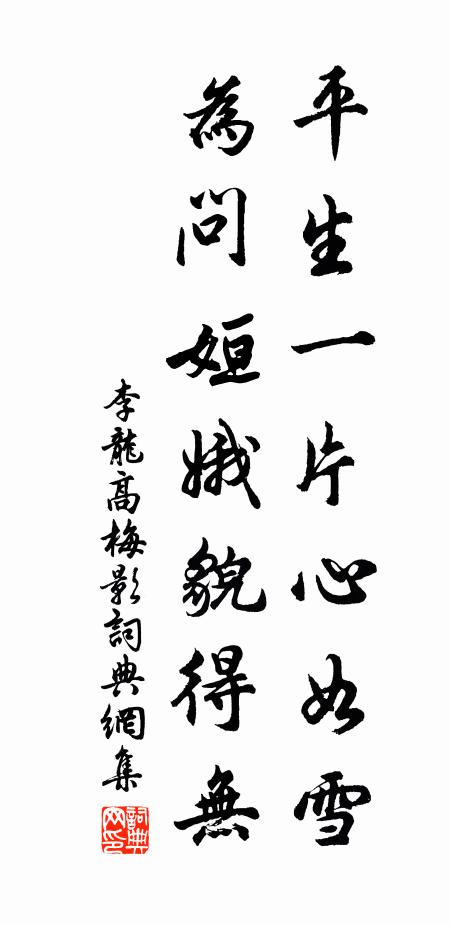 平生一片心如雪
為問姮娥貌得無
李龍高梅影詞典網集
詞典
网印